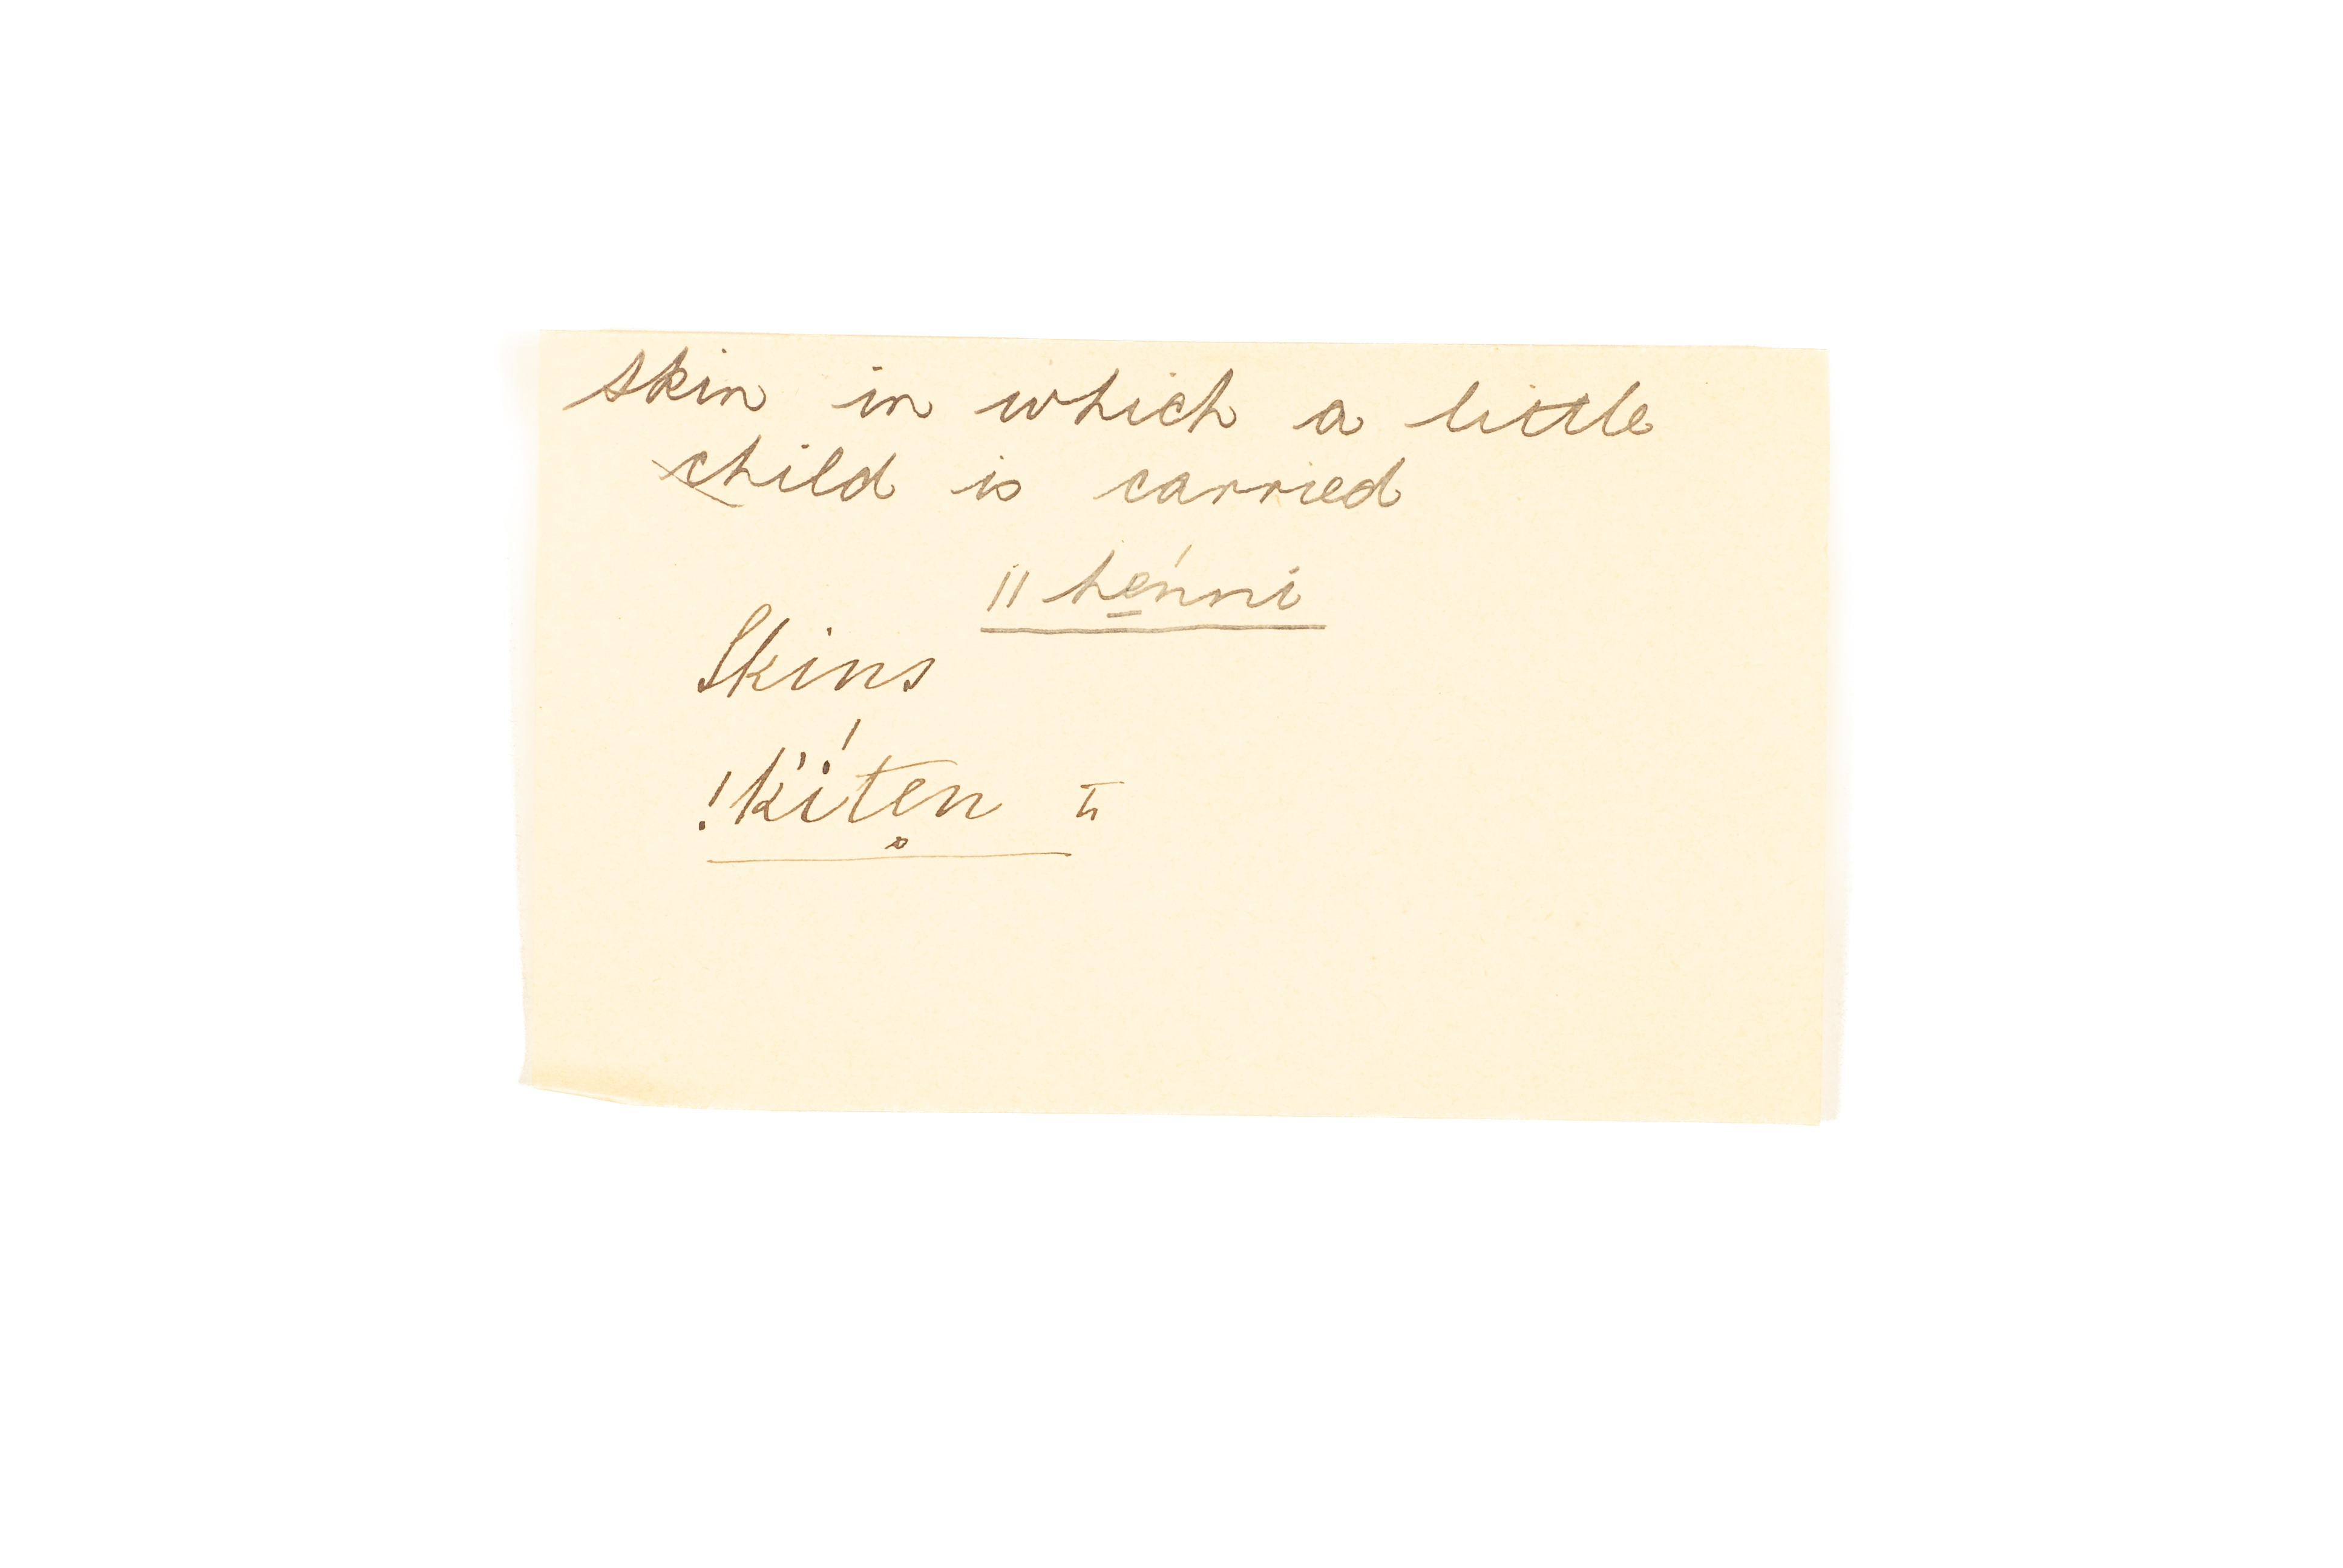 skin in which a little
child is carried
ǁ hé̱nni
Skins
!k'íte̥n π